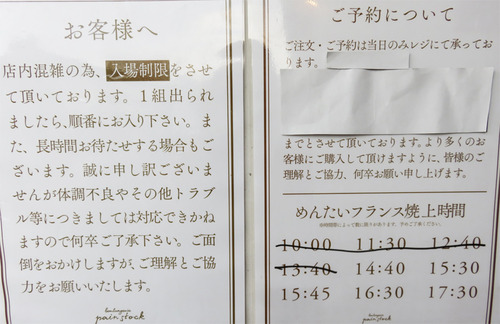 お客様へ
店内混雑の為、入場制限をさせ
て頂いております。1組出られ
ましたら、順番にお入り下さい。ま
た、長時間お待たせする場合もご
ざいます。誠に申し訳ございま
せんが体調不良やその他トラブ
ル等につきましては対応できかね
ますので何卒ご了承下さい。ご面
倒をおかけしますが、ご理解とご協
力をお願いいたします。
pain stock
ご予約について
ご注文・ご予約は当日のみレジにて承ってお
ります。
までとさせて頂いております。より多くのお
客様にご購入して頂けますように、皆様のご
理解とご協力、何卒お願い申し上げます。
めんたいフランス焼上時間
10:00 11:30 12:40
13:40 14:40 15:30
15:45 16:30 17:30
pain stock